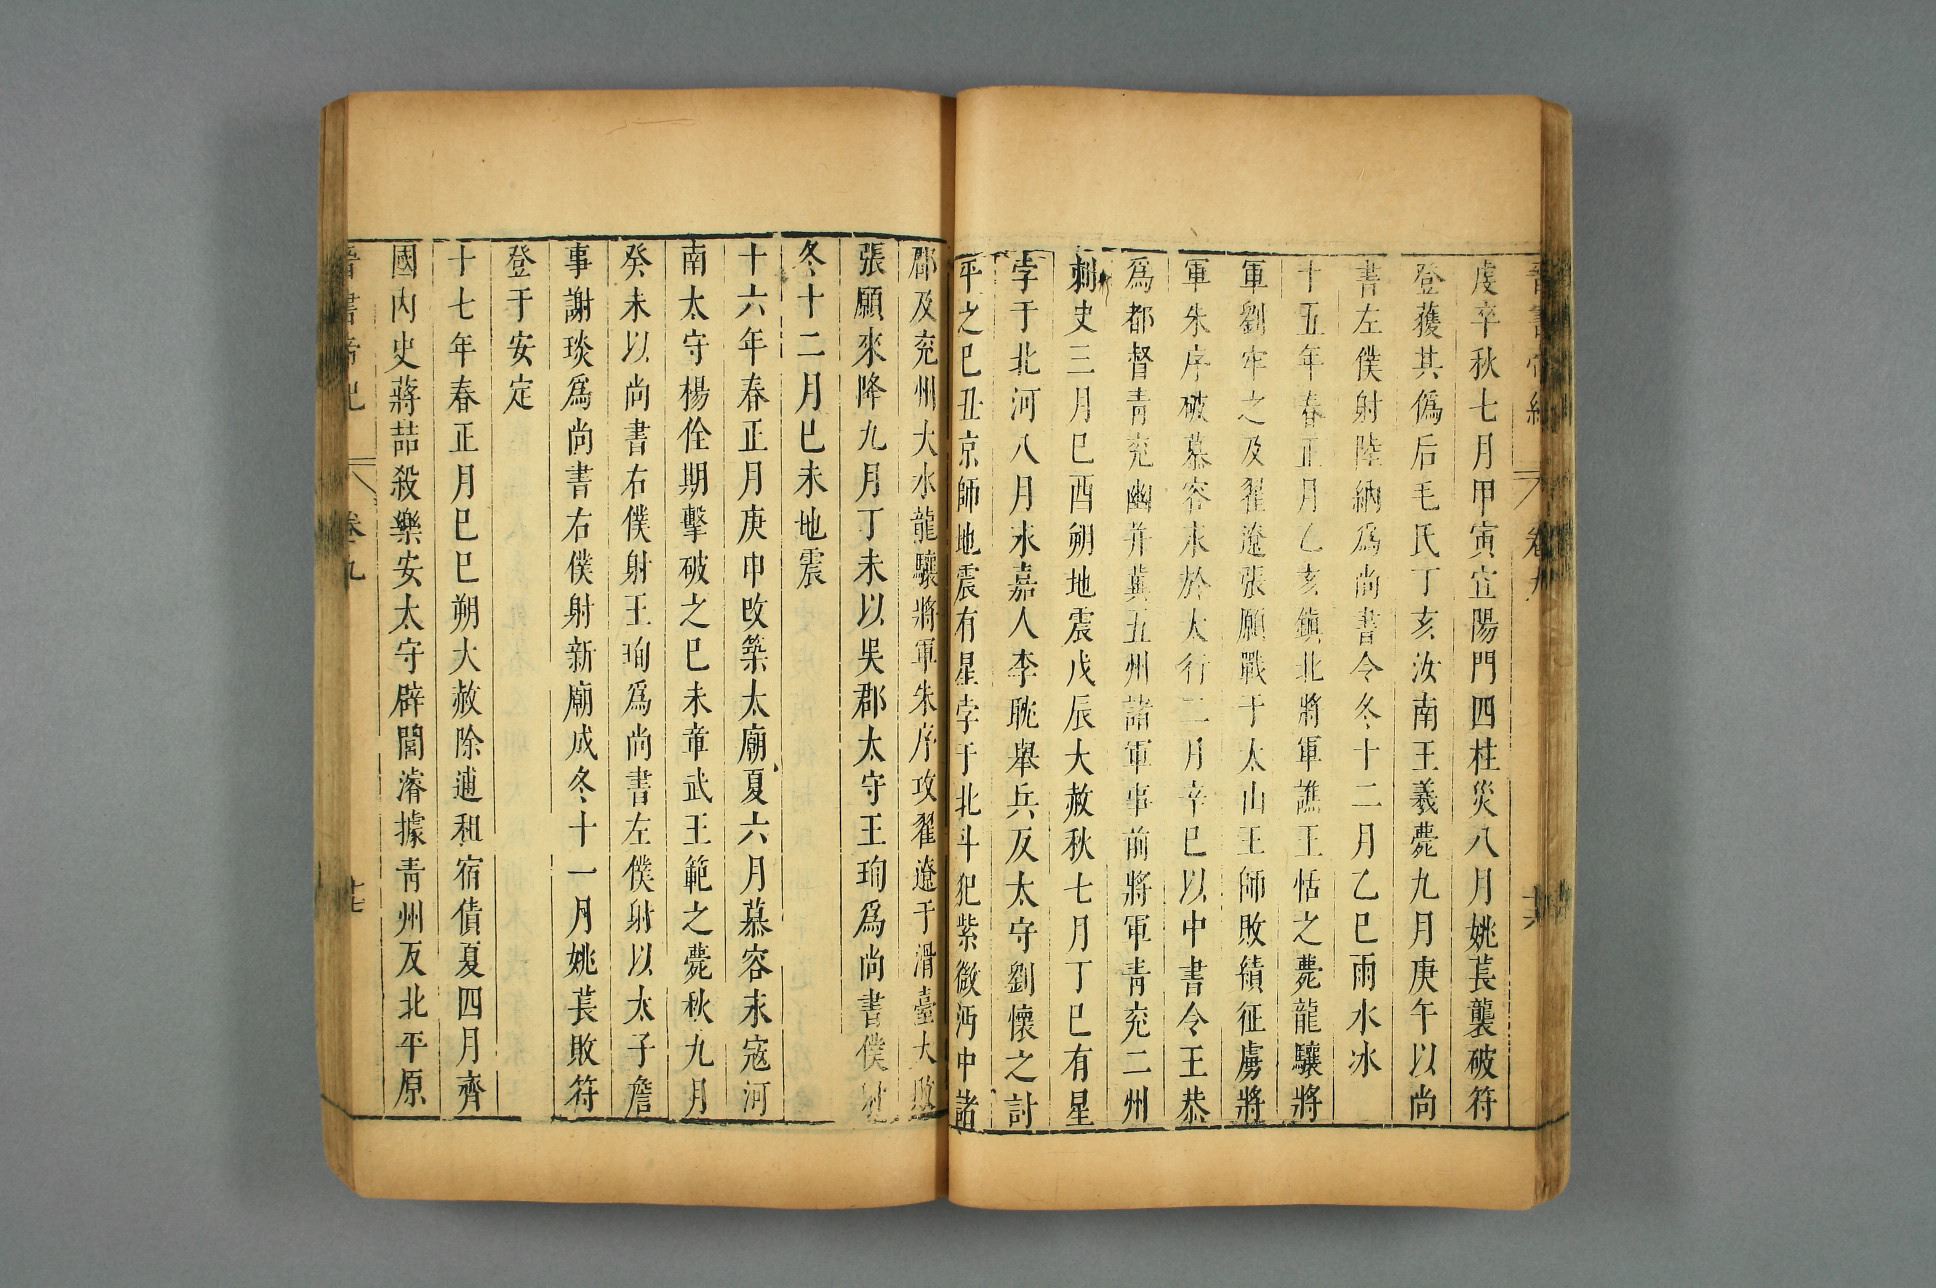 晉書帝紀 卷九 共
虔卒秋七月甲寅宣陽門四柱災八月姚萇襲破苻
登獲其僞后毛氏丁亥汝南王羲薨九月庚午以尚
書左僕射陸納爲尚書令冬十二月乙巳雨水冰
十五年春正月乙亥鎮北將軍譙王恬之薨龍驤將
軍劉牢之及翟遼張願戰于太山王師敗績征虜將
軍朱序破慕容永於太行二月辛巳以中書令王恭
爲都督青兖幽并冀五州諸軍事前將軍青兖二州
刺史三月己酉朔地震戊辰大赦秋七月丁巳有星
孛于北河八月永嘉人李耽舉兵反太守劉懷之討
平之己丑京師地震有星孛于北斗犯紫微沔中諸
郡及兖州大水龍驤將軍朱序攻翟遼于滑臺大敗
張願來降九月丁未以吳郡太守王珣爲尚書僕射
冬十二月己未地震
十六年春正月庚申改築太廟夏六月慕容永寇河
南太守楊佺期擊破之己未章武王範之薨秋九月
癸未以尚書右僕射王珣爲尚書左僕射以太子詹
事謝琰爲尚書右僕射新廟成冬十一月姚萇敗苻
登于安定
十七年春正月己巳朔大赦除逋租宿債夏四月齊
國内史蔣喆殺樂安太守辟閭濬據青州反北平原
晉書帝紀 卷九 七